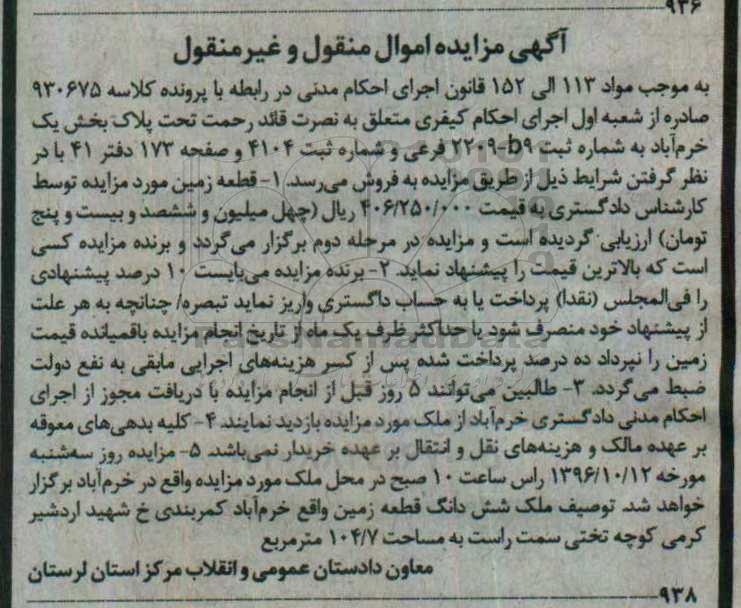 ۹۳۶
آگهی مزایده اموال منقول و غیرمنقول
به موجب مواد ۱۱۳ الی ۱۵۲ قانون اجرای احکام مدنی در رابطه با پرونده کلاسه ۹۳۰۶۷۵
صادره از شعبه اول اجرای احکام کیفری متعلق به نصرت قائد رحمت تحت پلاک بخش یک
خرم‌آباد به شماره ثبت ۲۲۰۹-b۹ فرعی و شماره ثبت ۴۱۰۴ و صفحه ۱۷۳ دفتر ۴۱ با در
نظر گرفتن شرایط ذیل از طریق مزایده به فروش می‌رسد. ۱- قطعه زمین مورد مزایده توسط
کارشناس دادگستری به قیمت ۴۰۶/۲۵۰/۰۰۰ ریال (چهل میلیون و ششصد و بیست و پنج
تومان) ارزیابی گردیده است و مزایده در مرحله دوم برگزار می‌گردد و برنده مزایده کسی
است که بالاترین قیمت را پیشنهاد نماید. ۲- برنده مزایده می‌بایست ۱۰ درصد پیشنهادی
را فی‌المجلس (نقدا) پرداخت یا به حساب داگستری واریز نماید تبصره/ چنانچه به هر علت
از پیشنهاد خود منصرف شود یا حداکثر ظرف یک ماه از تاریخ انجام مزایده باقمیانده قیمت
زمین را نپرداد ده درصد پرداخت شده پس از کسر هزینه‌های اجرایی مابقی به نفع دولت
ضبط می‌گردد. ۳- طالبین می‌توانند ۵ روز قبل از انجام مزایده با دریافت مجوز از اجرای
احکام مدنی دادگستری خرم‌آباد از ملک مورد مزایده بازدید نمایند. ۴- کلیه بدهی‌های معوقه
بر عهده مالک و هزینه‌های نقل و انتقال بر عهده خریدار نمی‌باشد. ۵- مزایده روز سه‌شنبه
مورخه ۱۳۹۶/۱۰/۱۲ راس ساعت ۱۰ صبح در محل ملک مورد مزایده واقع در خرم‌آباد برگزار
خواهد شد. توصیف ملک شش دانگ قطعه زمین واقع خرم‌آباد کمربندی خ شهید اردشیر
کرمی کوچه تختی سمت راست به مساحت ۱۰۴/۷ مترمربع
معاون دادستان عمومی و انقلاب مرکز استان لرستان
۹۳۸
ParsNamadData